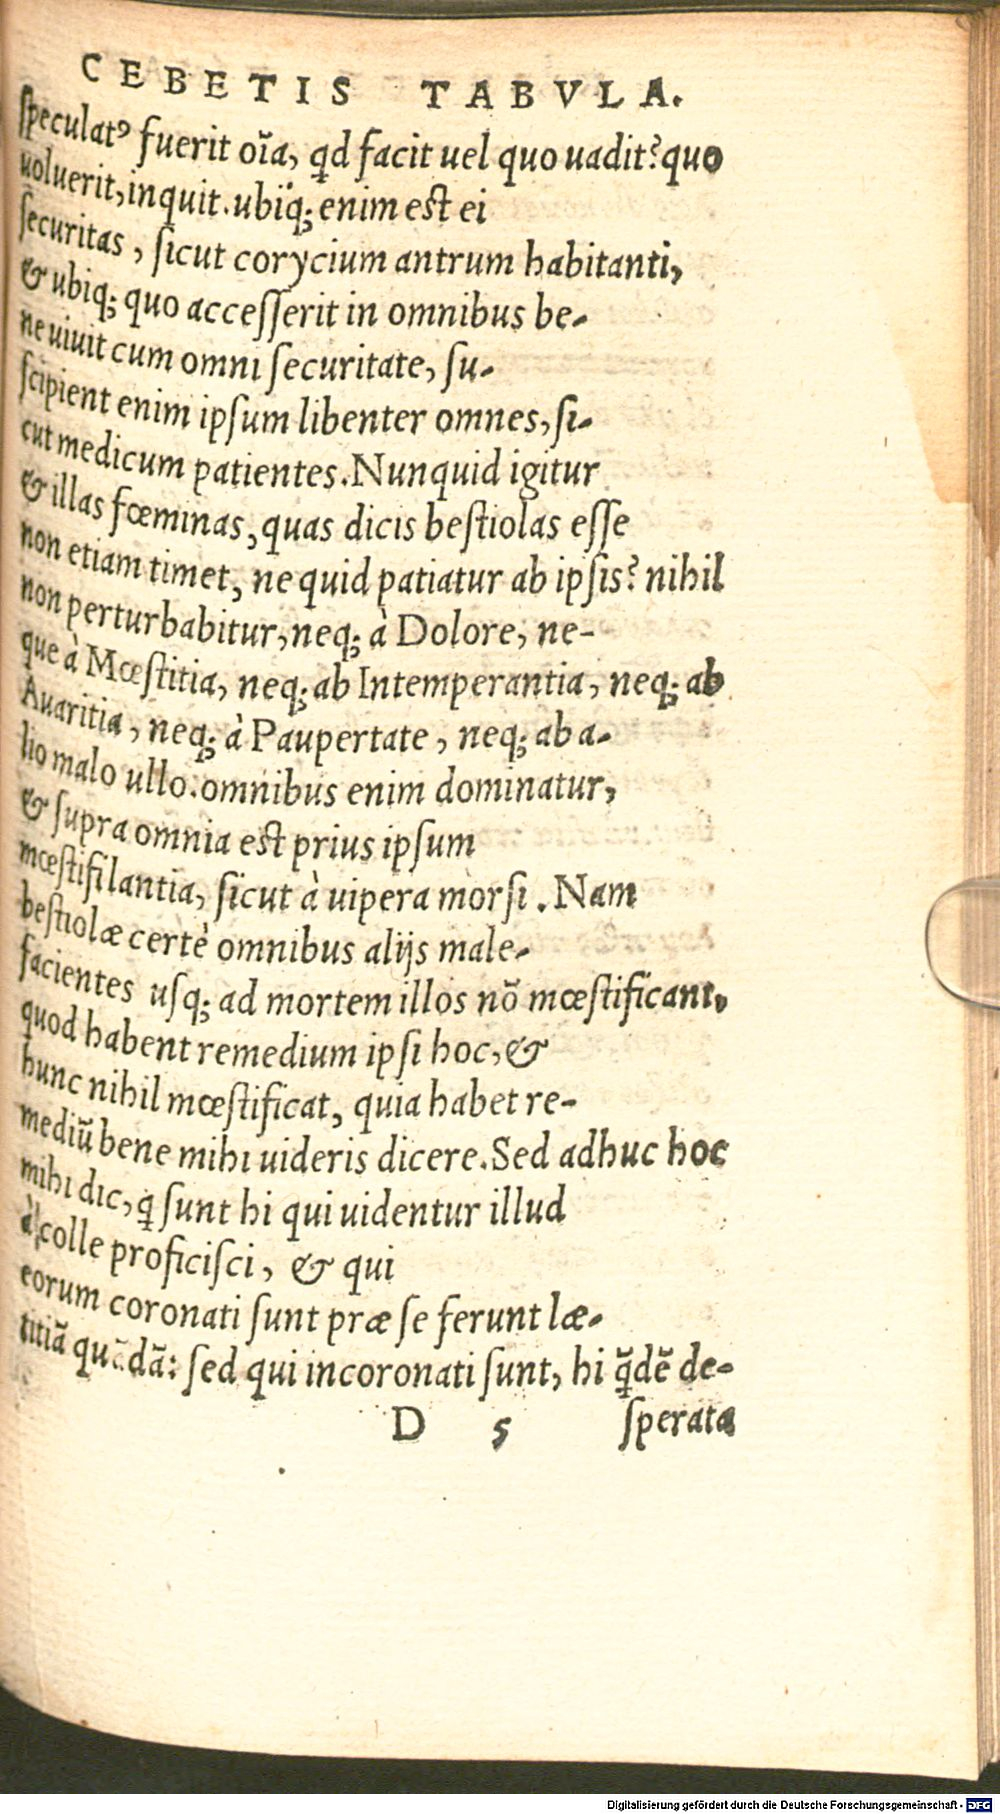 CEBETIS TABVLA.
ſpeculatꝰ fuerit oĩa, qđ facit uel quo uadit? quo
uoluerit, inquit. ubiq; enim eſt ei
ſecuritas, ſicut corycium antrum habitanti,
& ubiq; quo acceſſerit in omnibus be-
ne uiuit cum omni ſecuritate, ſu-
ſcipient enim ipſum libenter omnes, ſi-
cut medicum patientes. Nunquid igitur
& illas fœminas, quas dicis beſtiolas eſſe
non etiam timet, ne quid patiatur ab ipſis? nihil
non perturbabitur, neq; à Dolore, ne-
que à Mœſtitia, neq; ab Intemperantia, neq; ab
Auaritia, neq; à Paupertate, neq; ab a-
lio malo ullo. omnibus enim dominatur,
& ſupra omnia eſt prius ipſum
mœſtifilantia, ſicut à uipera morſi. Nam
beſtiolæ certè omnibus alijs male-
facientes uſq; ad mortem illos nõ mœſtificant,
quod habent remedium ipſi hoc, &
hunc nihil mœſtificat, quia habet re-
mediũ bene mihi uideris dicere. Sed adhuc hoc
mihi dic, ꝗ ſunt hi qui uidentur illud
à colle proficiſci, & qui
eorum coronati ſunt præ ſe ferunt læ-
titiã quãdã: ſed qui incoronati ſunt, hi ꝗ̃dẽ de-
D 5 ſperata
Digitalisierung gefördert durch die Deutsche Forschungsgemeinschaft - DFG